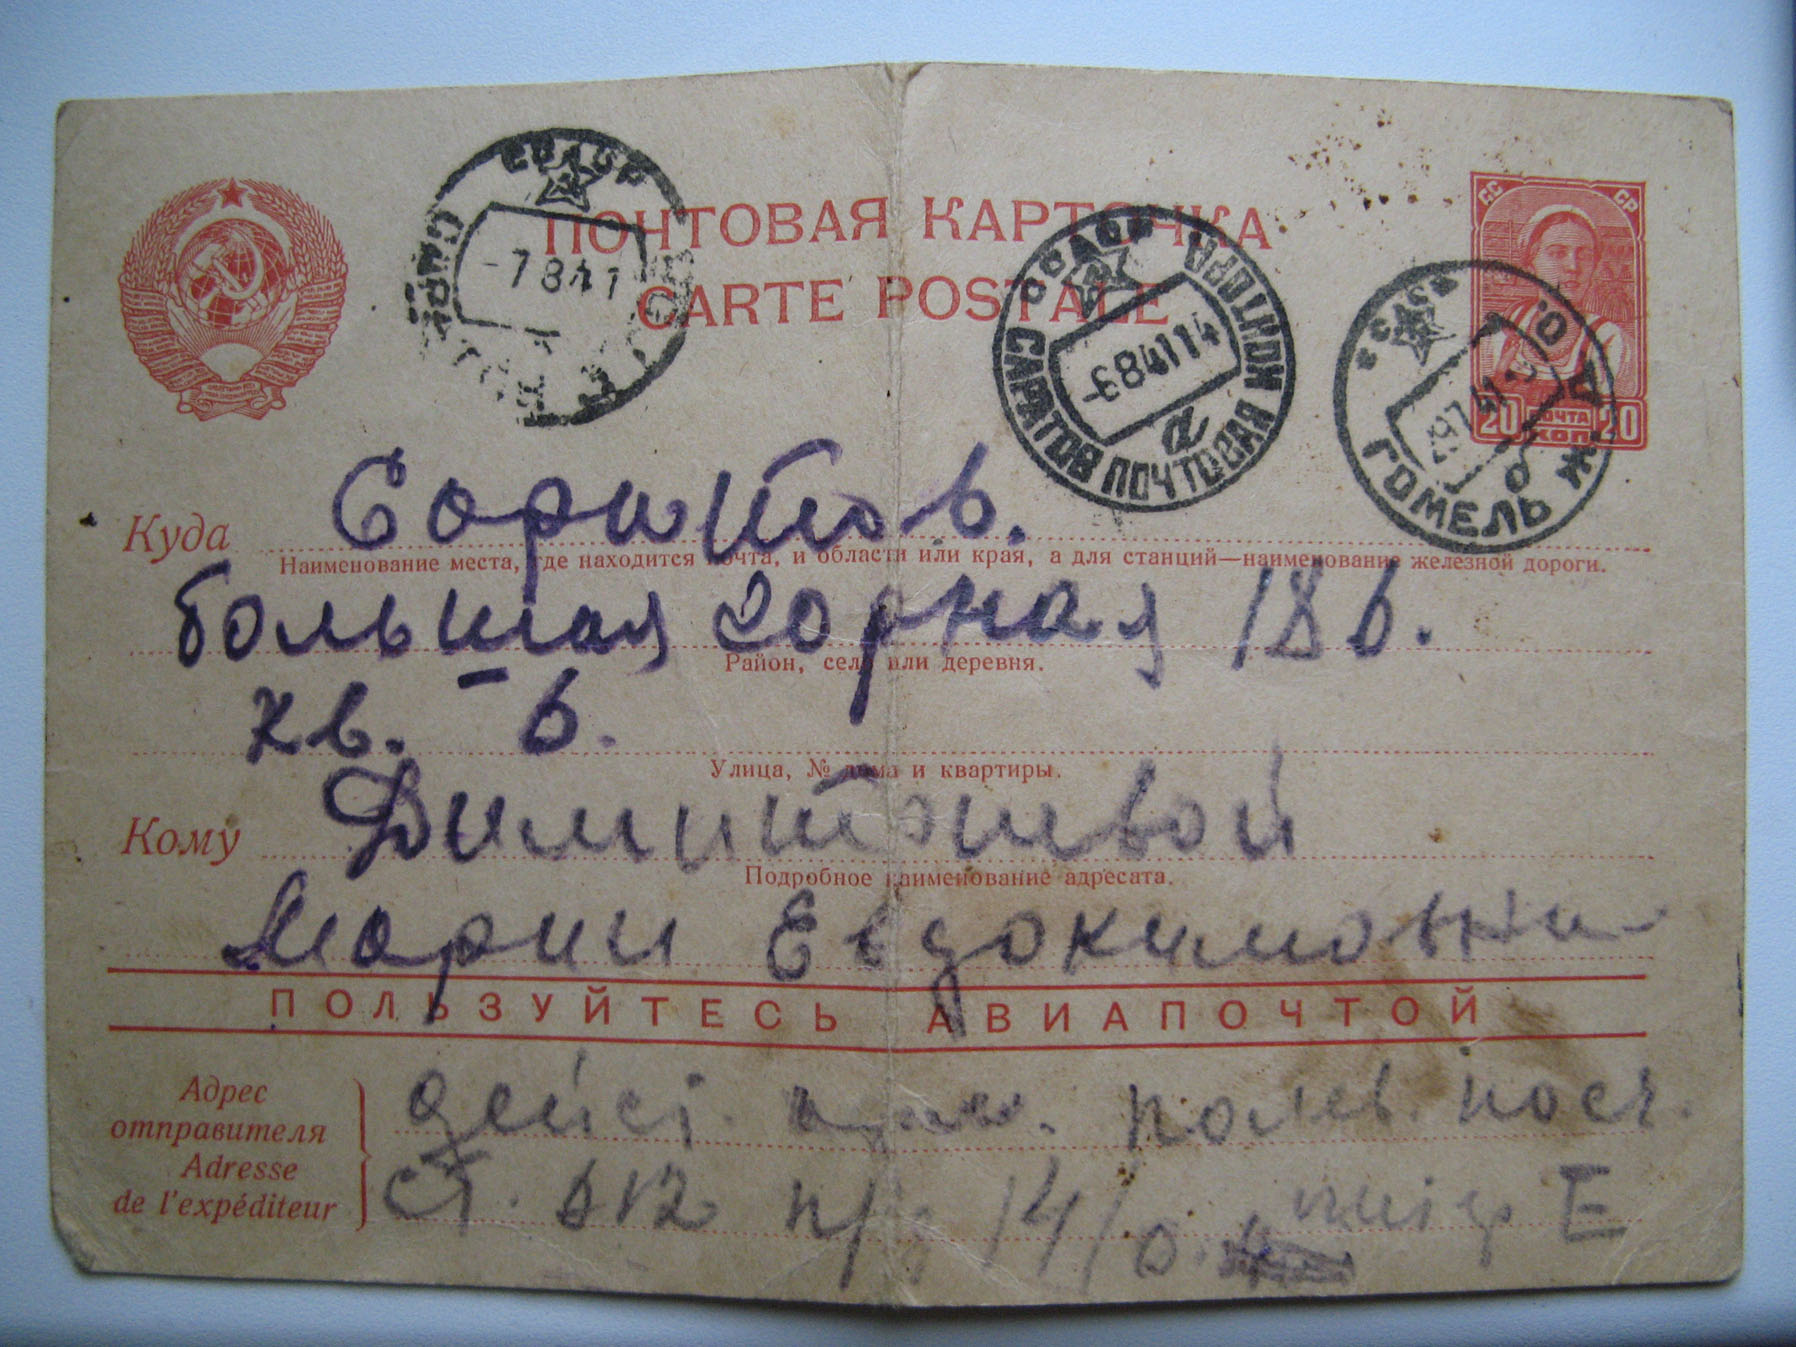 ПОЧТОВАЯ КАРТОЧКА
CARTE POSTALE
СССР
-7 8 41
СССР
-6 8 41 14
САРАТОВ ПОЧТОВАЯ КОНТОРА
а
СССР
ГОМЕЛЬ Ж. Д. О.
СС СР
20 ПОЧТА 20
КОП
Куда Саратов.
Наименование места, где находится почта, и области или края, а для станций—наименование железной дороги.
большая горная 18 6.
Район, село или деревня.
кв. – 6.
Улица, № дома и квартиры.
Кому
Подробное наименование адресата.
Марии Евдокимовни
ПОЛЬЗУЙТЕСЬ АВИАПОЧТОЙ
Адрес
отправителя
Adresse
de l'expéditeur
дейст. арм. полев. посч.
ст. п/я 14/о. Е